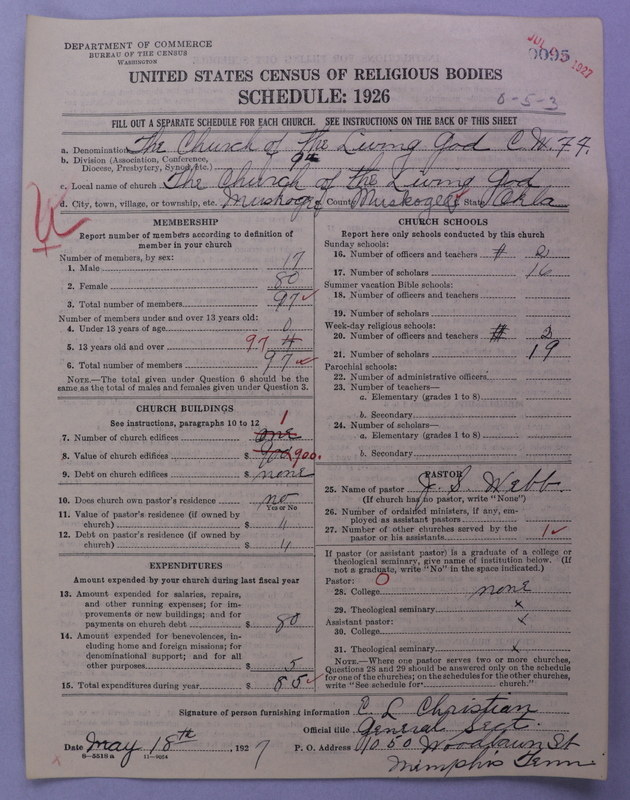 DEPARTMENT OF COMMERCE
BUREAU OF THE CENSUS
WASHINGTON
JUL 1927
0095
UNITED STATES CENSUS OF RELIGIOUS BODIES
SCHEDULE: 1926
0-5-3
FILL OUT A SEPARATE SCHEDULE FOR EACH CHURCH. SEE INSTRUCTIONS ON THE BACK OF THIS SHEET
a. Denomination The Church of The Living God C.W.F.F.
b. Division (Association, Conference,
Diocese, Presbytery, Synod, etc.)
c. Local name of church The Church of the Living God
d. City, town, village, or township, etc. Muskogee County Muskogee State Okla
MEMBERSHIP
Report number of members according to definition of
member in your church
Number of members, by sex:
1. Male 17
2. Female 80
3. Total number of members 97
Number of members under and over 13 years old:
4. Under 13 years of age 0
5. 13 years old and over 97
6. Total number of members 97
NOTE.—The total given under Question 6 should be the
same as the total of males and females given under Question 3.
CHURCH BUILDINGS
See instructions, paragraphs 10 to 12
7. Number of church edifices one 1
8. Value of church edifices $ 900 900.
9. Debt on church edifices $ none
10. Does church own pastor's residence no
Yes or No
11. Value of pastor's residence (if owned by
church) $ "
12. Debt on pastor's residence (if owned by
church) $ "
EXPENDITURES
Amount expended by your church during last fiscal year
13. Amount expended for salaries, repairs,
and other running expenses; for im-
provements or new buildings; and for
payments on church debt $ 80
14. Amount expended for benevolences, in-
cluding home and foreign missions; for
denominational support; and for all
other purposes $ 5
15. Total expenditures during year $ 85
CHURCH SCHOOLS
Report here only schools conducted by this church
Sunday schools:
16. Number of officers and teachers 2
17. Number of scholars 16
Summer vacation Bible schools:
18. Number of officers and teachers
19. Number of scholars
Week-day religious schools:
20. Number of officers and teachers 2
21. Number of scholars 19
Parochial schools:
22. Number of administrative officers
23. Number of teachers—
a. Elementary (grades 1 to 8)
b. Secondary
24. Number of scholars—
a. Elementary (grades 1 to 8)
b. Secondary
PASTOR
25. Name of pastor J. S. Webb.
(If church has no pastor, write "None")
26. Number of ordained ministers, if any, em-
ployed as assistant pastors
27. Number of other churches served by the
pastor or his assistants 1
If pastor (or assistant pastor) is a graduate of a college or
theological seminary, give name of institution below. (If
not a graduate, write "No" in the space indicated.)
Pastor: 0
28. College none
29. Theological seminary x
Assistant pastor:
30. College x
31. Theological seminary x
NOTE.—Where one pastor serves two or more churches,
Questions 28 and 29 should be answered only on the schedule
for one of the churches; on the schedules for the other churches,
write "See schedule for church."
Signature of person furnishing information E. L. Christian
Official title General Sect.
Date May 18th, 1927 P. O. Address 1050 Woodlawn St
Memphis Tenn.
8—5518a 11—9024